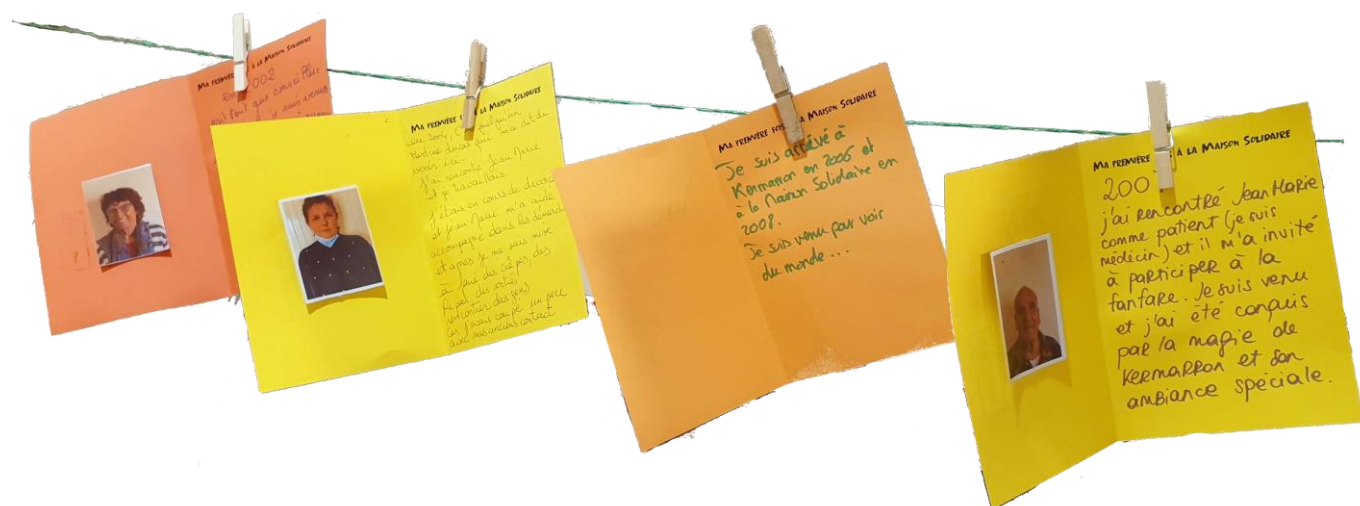 MA PREMIÈRE À LA MAISON SOLIDAIRE
002
en tant que
suis venus
MA PREMIÈRE LA MAISON SOLIDAIRE
en 2004, c'est quelqu'un
Nadine qui m'a dit de
venir ici.
J'ai rencontré Jean Marie
et je travaillais
J'étais en cours de dossier
et Jean Marie m'a aidé
accompagné dans les demandes
et après je me suis mise
à faire des crêpes, des
repas, des sorties
rencontrer des gens
car j'avais coupé un peu
avec mes anciens contact
MA PREMIÈRE FOIS LA MAISON SOLIDAIRE
Je suis arrivé à
Kermarron en 2006 et
à la Maison Solidaire en
2008.
Je suis venu par voir
du monde...
MA PREMIÈRE À LA MAISON SOLIDAIRE
200
j'ai rencontré Jean Marie
comme patient (je suis
médecin) et il m'a invité
à participer à la
fanfare. Je suis venu
et j'ai été conquis
par la magie de
Kermarron et son
ambiance spéciale.